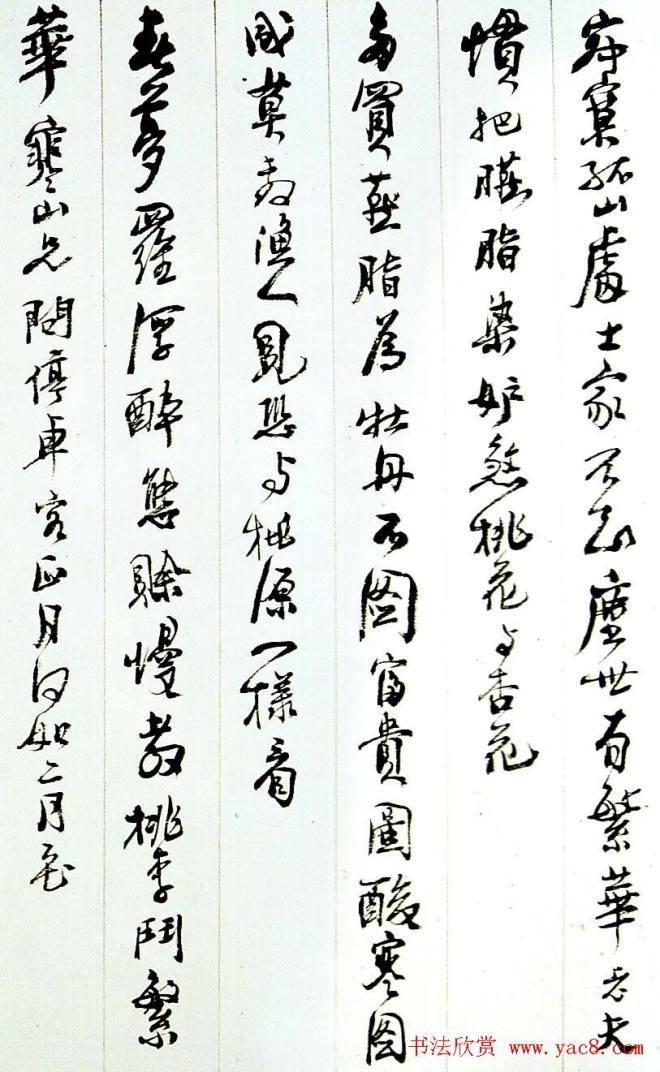 寂寞孤山處士家不知塵世有繁華老夫
慣把臙脂染妒煞桃花与杏花
多買燕脂為牡丹不图富貴圖酸寒图
成莫教漁人見恐与桃源一樣看
春夢羅浮醉態賒慢教桃李鬥繁
華寒山問停車客正月何如二月花
书法欣赏 www.yac8.com